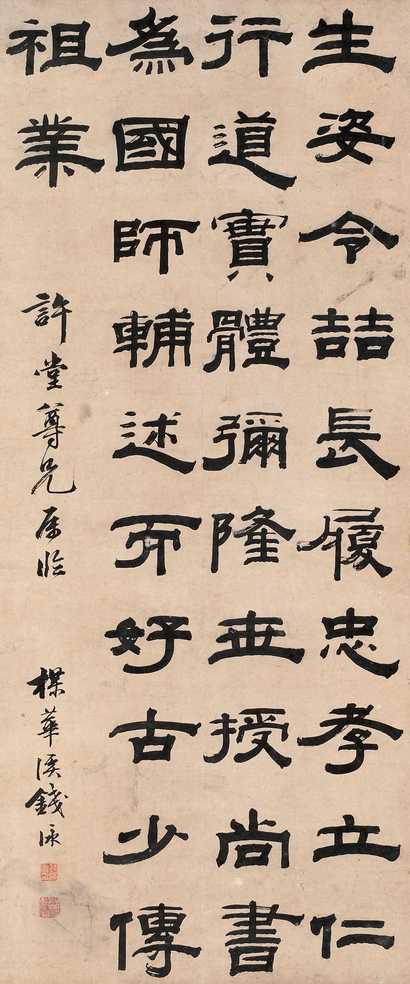 生姿令喆長履忠孝立仁
行道實體彌隆世授尚書
為國師輔述而好古少傳
祖業
許堂尊兄屬臨
楳華溪錢泳